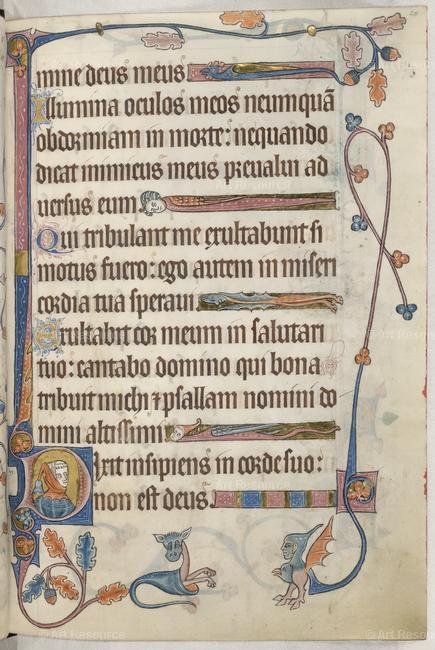 mine deus meus
Illumina oculos meos ne umquã
obdormiam in morte: nequando
dicat inimicus meus prevalui ad
versus eum.
Qui tribulant me exultabunt si
motus fuero: ego autem in miseri
cordia tua speravi
Exultabit cor meum in salutari
tuo: cantabo domino qui bona
tribuit michi ⁊ psallam nomini do
mini altissimi
Dixit insipiens in corde suo:
non est deus.
© Art Resource
© Art Resource